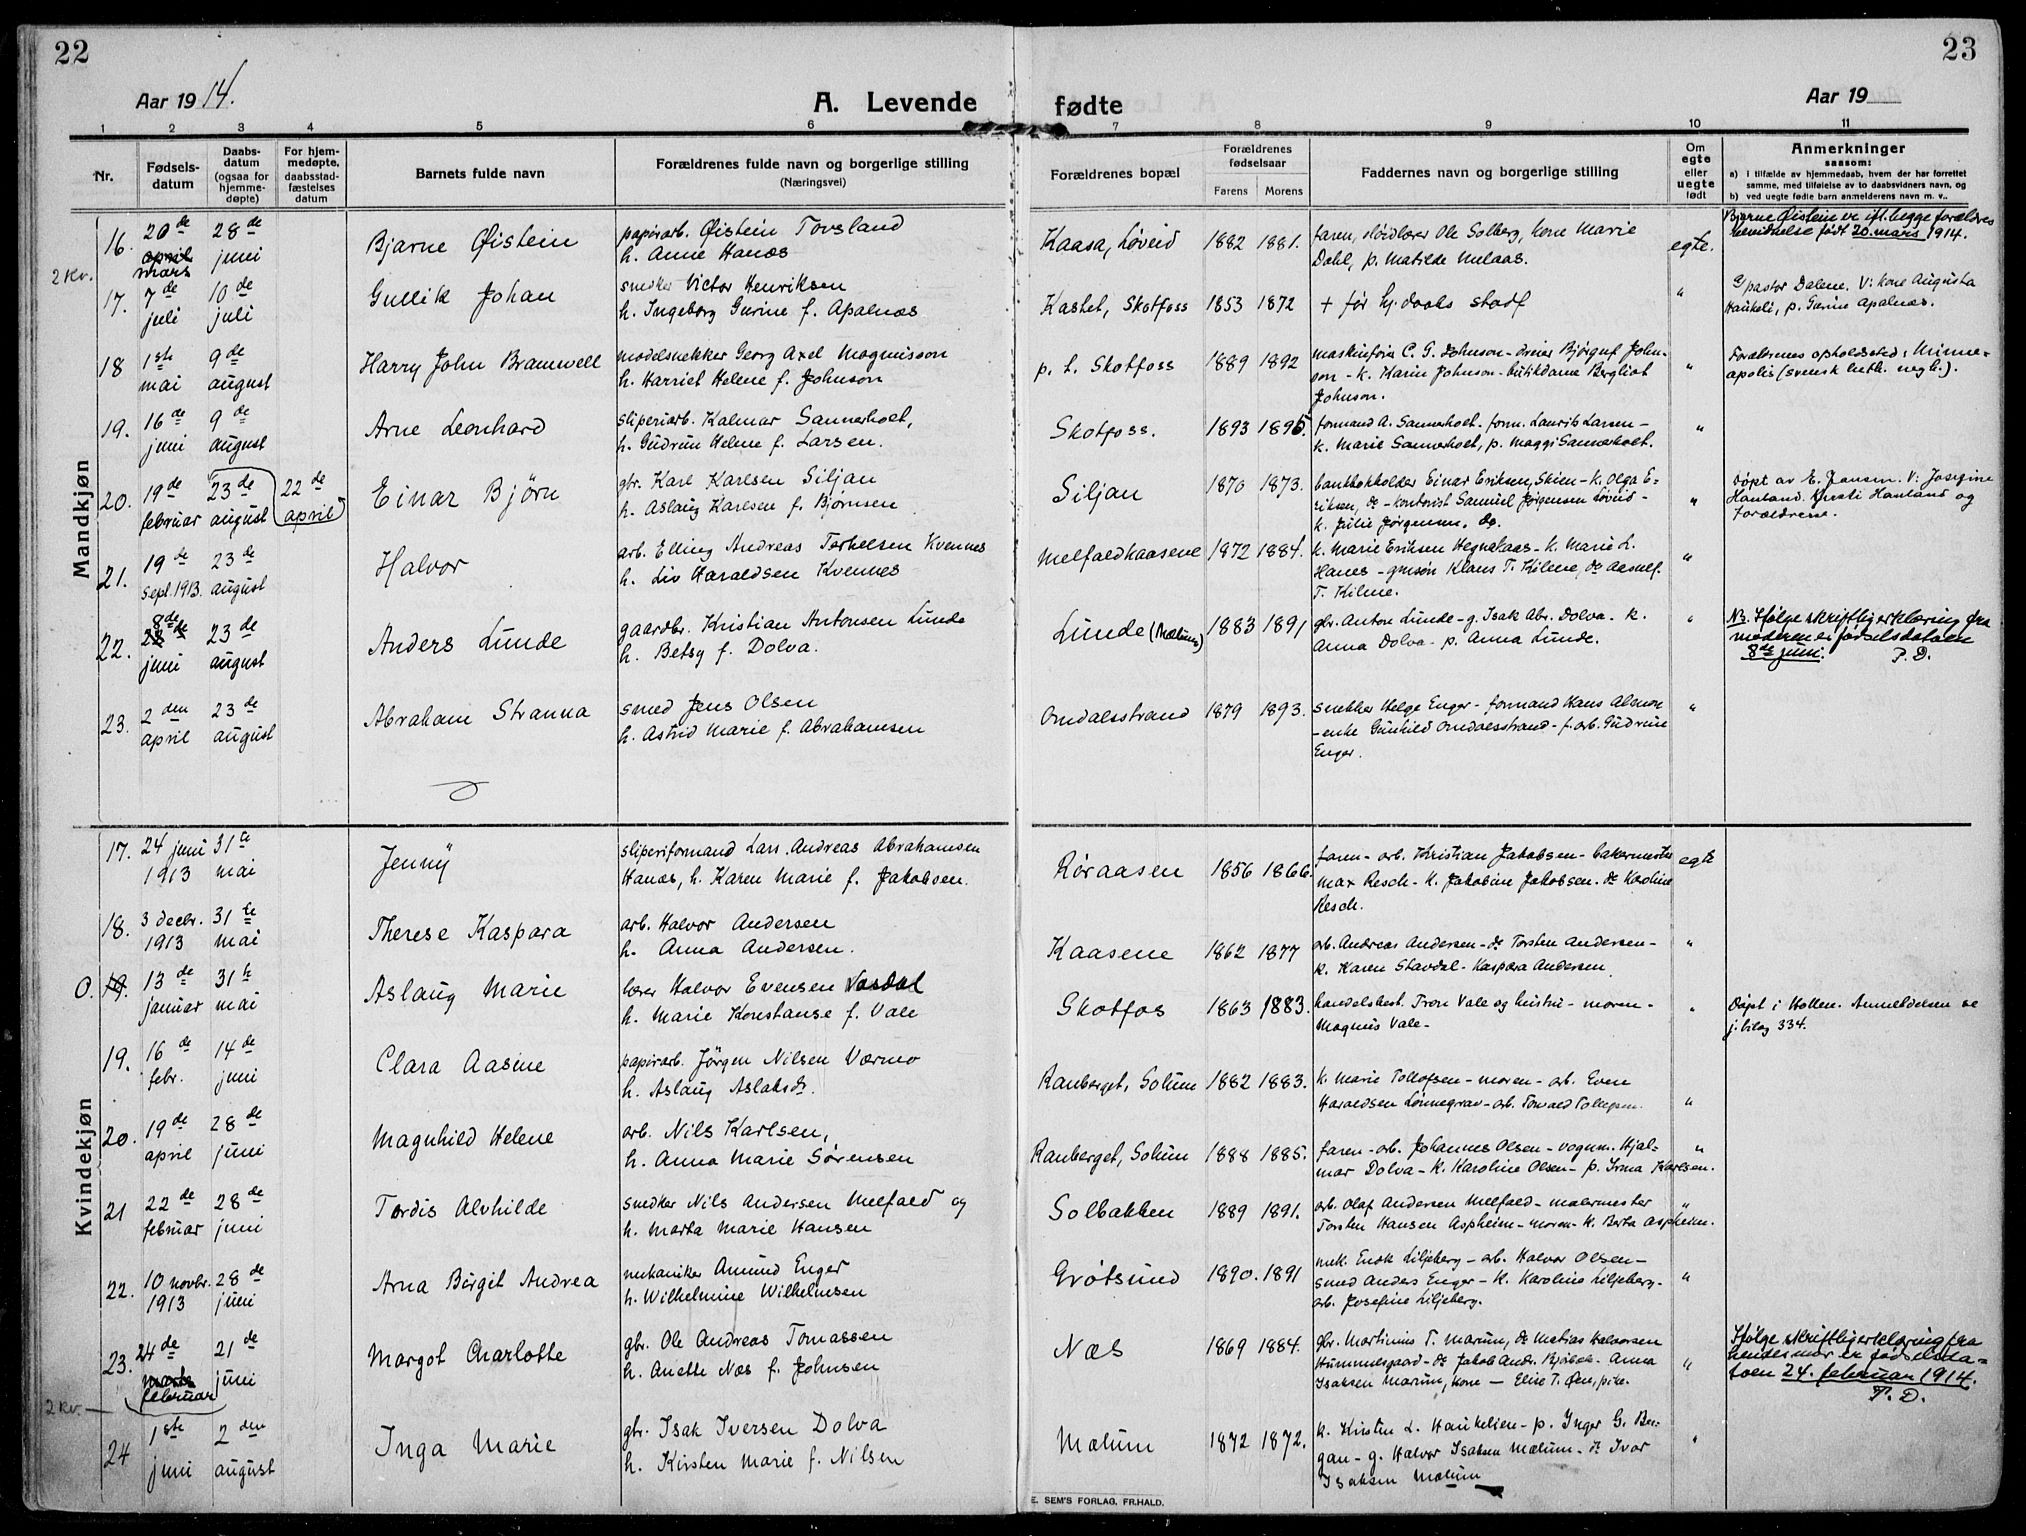 22
23
Aar 1914.
A. Levende fødte
Aar 19
1 2 3 4 5 6 7 8 9 10 11
Nr.
Fødsels-
datum
Daabs-
datum
(ogsaa for
hjemme-
døpte)
For hjem-
medøpte,
daabsstad-
fæstelses
datum
Barnets fulde navn
Forældrenes fulde navn og borgerlige stilling
(Næringsvei)
Forældrenes bopæl
Forældrenes
fødselsaar
Farens Morens
Faddernes navn og borgerlige stilling
Om
egte
eller
uegte
født
Anmerkninger
saasom:
a) i tilfælde av hjemmedaab, hvem der har forrettet
samme, med tilføielse av to daabsvidners navn, og
b) ved uegte fødte barn anmelderens navn m. v..
Mandkjøn
16. 20de april mars 28de juni
Bjarne Øistein
papirarb. Øistein Tovsland
h. Anne Hanæs
Kaasa, Løveid 1882 1881.
faren, sløidlærer Ole Solberg, kone Marie
Dahl, p. Matilde Melaas.
egte.
Bjarne Øistein er ifl. begge forældres
bevidnelse født 20. mars 1914.
2 kv.
17. 7de juli 10de juli
Gullik Johan
snedker Victor Henriksen
h. Ingeborg Gurine f. Apalnæs
Kastet, Skotfoss 1853 1872
+ før hj.daabs stadf
"
pastor Dalene. V: kone Augusta
Haukeli, p. Gurine Apalnæs.
18 1ste mai 9de august
Harry John Bramwell
modelsnekker Georg Axel Magnusson
h. Harriet Helene f. Johnson
p. t. Skotfoss 1889 1892
maskinfører C. G. Johnson - dreier Bjørguf John-
son - k. Karin Johnson - butikdame Bergliot
Johnson.
"
Forældrenes opholdssted: Minne-
apolis (svensk luth. megh.).
19. 16de juni 9de august
Arne Leonhard
sliperiarb. Kalmar Sannerholt,
h. Gudrun Helene f. Larsen.
Skotfoss. 1893 1895.
formand A. Sannerholt. form. Laurits Larsen -
k. Marie Sannerholt, p. Maggi Sannerholt.
"
20. 19de februar 23de august 22de april
Einar Bjørn
gbr. Karl Karlsen Siljan
h. Aslaug Karlsen f. Bjørnsen
Siljan 1870 1873.
bankbokholder Einar Eriksen, Skien - k. Olga E-
riksen, do - kontorist Samuel Jørgensen Løveid -
k. Julie Jørgensen, do.
"
Døpt av E. Jensen. V: Josefine
Hanland, Kristi Hanland og
forældrene.
21. 19de sept. 1913. 23de august
Halvor
arb. Elling Andreas Torkelsen Kvennes
h. Liv Haraldsen Kvennes
Melfaldkaasene 1872 1884.
k. Marie Eriksen Hegnakaas - k. Marie L.
Hanes - gmsøn Klaus T. Kilene, do Aasulf
T. Kilene.
"
22. 8de 28de juni 23de august
Anders Lunde
gaardbr. Kristian Antonsen Lunde
h. Betsy f. Dolva.
Lunde (Mælum) 1883 1891
gbr. Anton Lunde - g. Isak Abr. Dolva - k.
Anna Dolva - p. Anna Lunde.
"
NB. Ifølge skriftlig erklæring fra
moderen er fødselsdatoen
8de juni. P. D.
23. 2den april 23de august
Abraham Stranna
smed Jens Olsen
h. Astrid Marie f. Abrahamsen
Omdalsstrand 1879 1893.
snekker Helge Enger - formand Hans Abmor
- enke Gunhild Omdalsstrand - f. arb. Gudrun
Enger.
"
Kvindekjøn
17. 24 juni 1913 31te mai
Jenny
sliperiformand Lars Andreas Abrahamsen
Hanæs, h. Karen Marie f. Jakobsen.
Røraasen 1856 1866.
faren - arb. Kristian Jakobsen - bakermester
Max Resch - k. Jakobine Jakobsen. do Karoline
Resch.
egte
18. 3 decbr. 1913 31te mai
Therese Kaspara
arb. Halvor Andersen
h. Anna Andersen.
Kaasene 1862 1877
arb. Andreas Andersen - do Torsten Andersen -
k. Karen Stavdal - Kaspara Andersen
"
0. 19. 13de januar 31te mai
Aslaug Marie
lærer Halvor Evensen Vasdal
h. Marie Konstanse f. Vale
Skotfos 1863 1883.
handelsbest. Tron Vale og hustru - moren -
Magnus Vale -
"
Døpt i Hollen. Anmeldelsen se
j. bilag 334.
19. 16de febr. 14de juni
Clara Aasine
papirarb. Jørgen Nilsen Værmo
h. Aslaug Aslaksdr.
Ranberget, Solum 1882 1883.
k. Marie Tollofsen - moren - arb. Even
Haraldsen Lønnegrav - arb. Torvald Tollefsen.
"
20. 19de april 28de juni
Magnhild Helene
arb. Nils Karlsen,
h. Anna Marie Sørensen
Ranberget, Solum 1888 1885.
faren - arb. Johannes Olsen - vognm. Hjal-
mar Dolva - k. Karoline Olsen - p. Irma Karlsen.
"
21 22de februar 28de juni
Tordis Alvhilde
snedker Nils Andersen Melfald og
h. Marta Marie Hansen
Solbakken 1889 1891.
arb. Olaf Andersen Melfald - malermester
Torsten Hansen Aspheim - moren - k. Berta Aspheim.
"
22. 10 novbr. 1913 28de juni
Arna Birgit Andrea
mekaniker Amund Enger
h. Wilhelmine Wilhelmsen
Grøtsund 1890. 1891
mek. Enok Liljeberg - arb. Halvor Olsen -
smed Anders Enger - k. Karoline Liljeberg -
arb. Josefine Liljeberg.
"
23. 24de marts februar 21de juni
Margot Charlotte
gbr. Ole Andreas Tomassen
h. Anette Næs f. Johnsen
Næs 1869 1884.
gbr. Martinius T. Mærum, do Matias Halvorsen
Hummelgaard - do Jakob Andr. Bjøbæk - Anna
Isaksen Mærum, kone - Elise T. Øen, pike.
"
Ifølge skriftlig erklæring fra
hendes mor er fødselsda-
toen 24. februar 1914.
P. D.
2 kv.
24 1ste juni 2den august
Inga Marie
gbr. Isak Iversen Dolva
h. Kirsten Marie f. Nilsen
Mælum 1872 1872.
k. Kirsten L. Haukelien - p. Inger G. Ber-
gan - g. Halvor Isaksen Mælum - do Ivar
Isaksen Mælum
"
E. SEM'S FORLAG, FR.HALD.